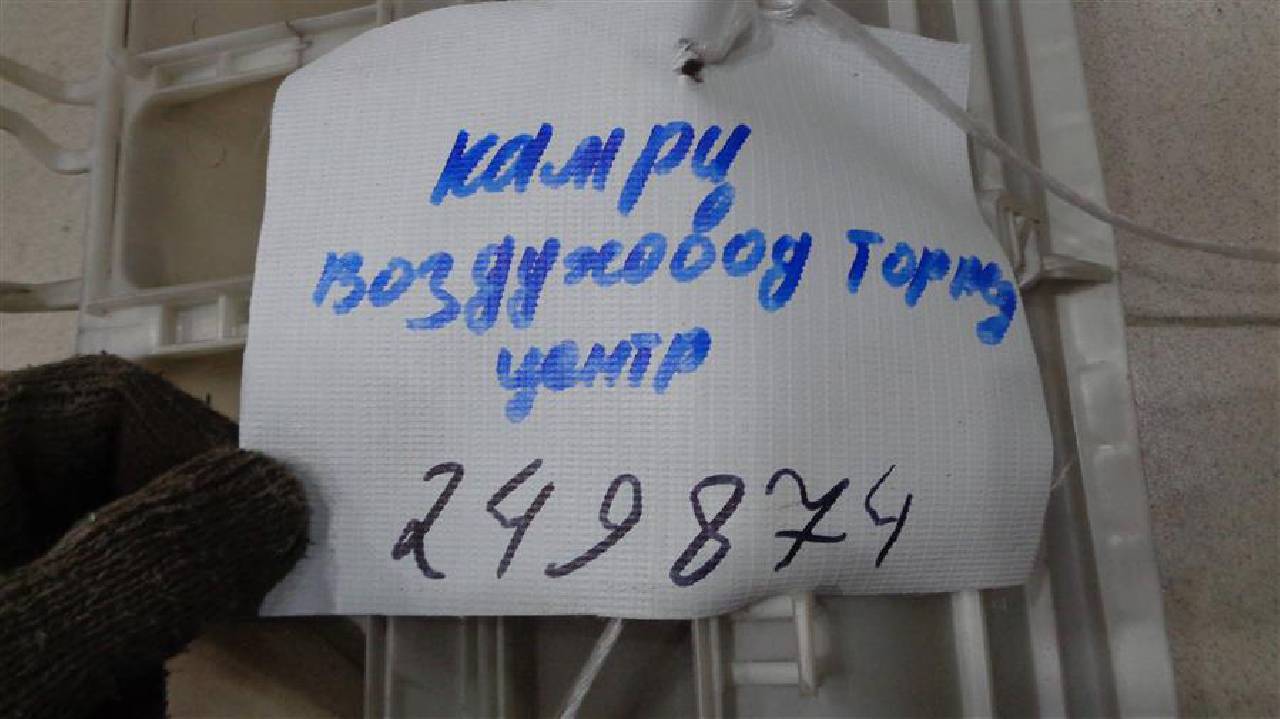 камри
воздуховод торпед
центр
249874